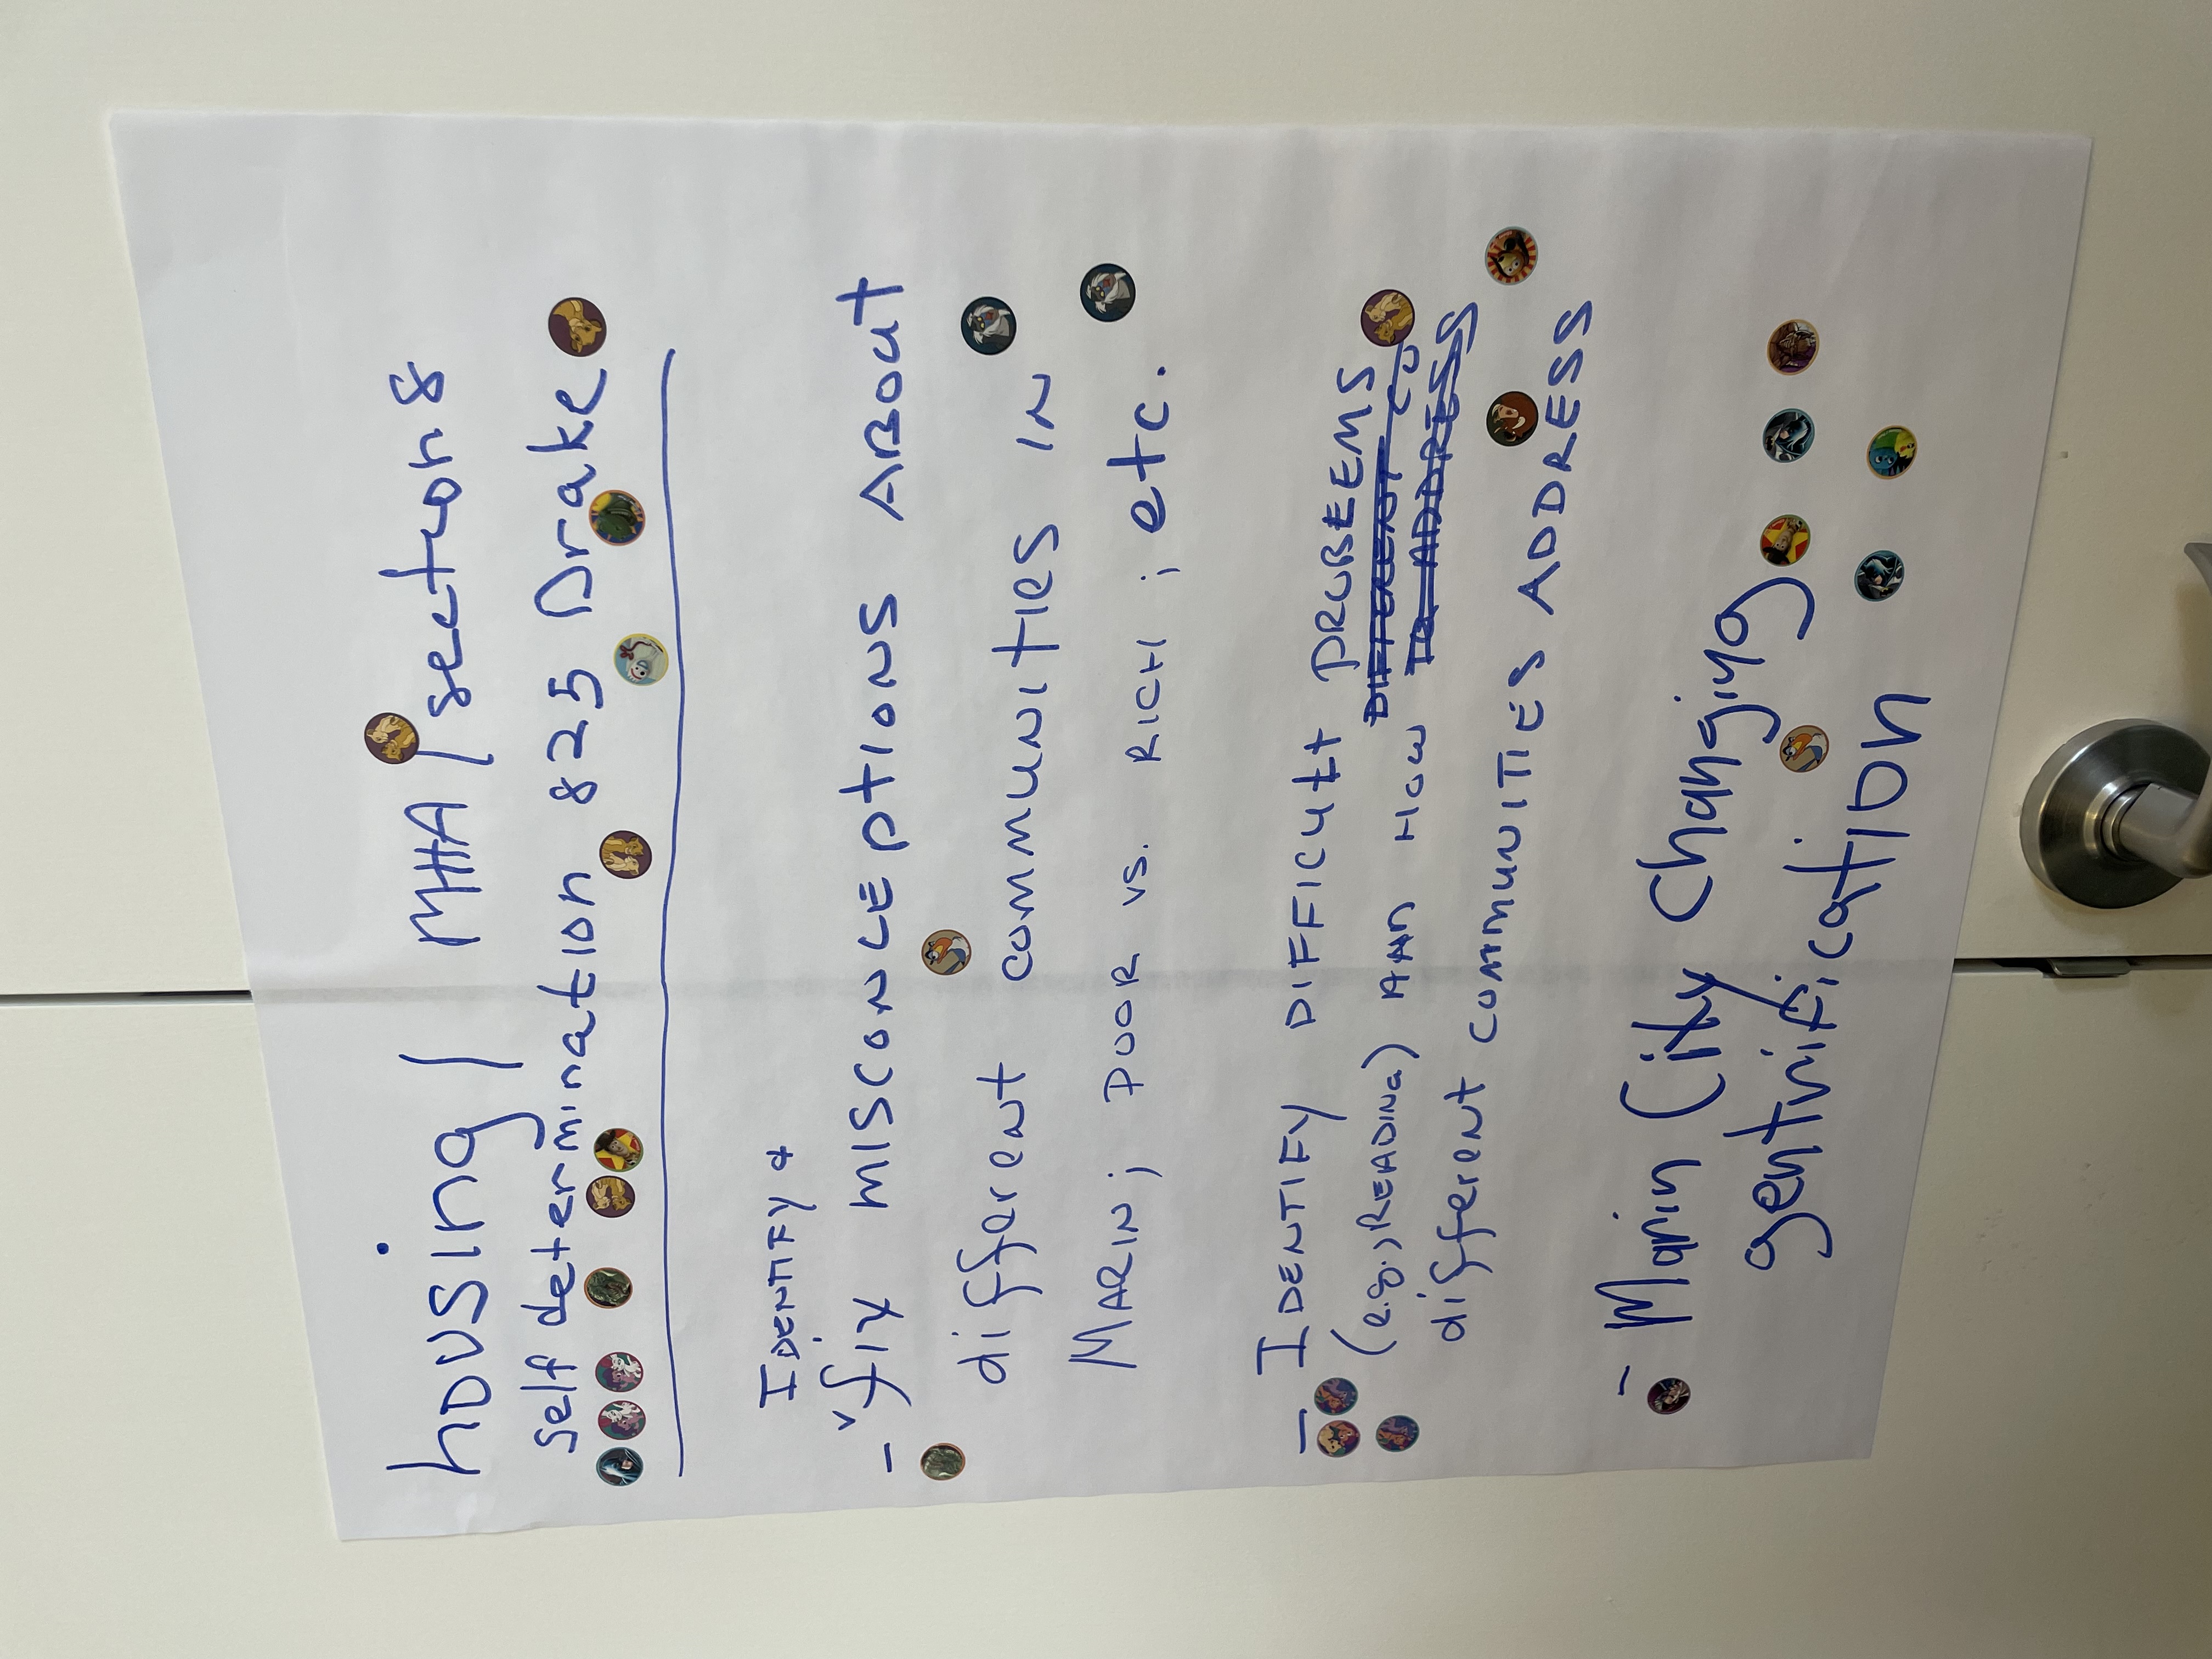 housing / MHA / section 8
self determination 825 Drake
Identify +
- fix misconceptions about
different communities in
Marin; poor vs. rich; etc.
- Identify difficult problems
(e.g., reading) and how
different communities address
- Marin City Changing
gentrification